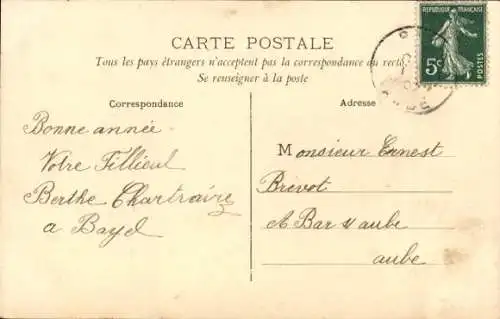 CARTE POSTALE
Tous les pays étrangers n'acceptent pas la correspondance au recto
Se renseigner à la poste
REPUBLIQUE FRANÇAISE
5c
POSTES
Correspondance
Bonne année
Votre Fillieul
Berthe Chartraire
a Bayel
Adresse
Monsieur Ernest
Brevot
A Bar s/ aube
aube